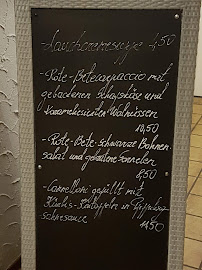 Lauchcremesuppe 4,50
-Rote-Betecarpaccio mit
gebackenen Schafskäse und
karamelisierten Walnüssen
10,50
-Rote-Bete-schwarze Bohnen-
salat und gebratene Garnelen
8,50
-Cannelloni gefüllt mit
Kürbis-Kartoffeln in
11,50